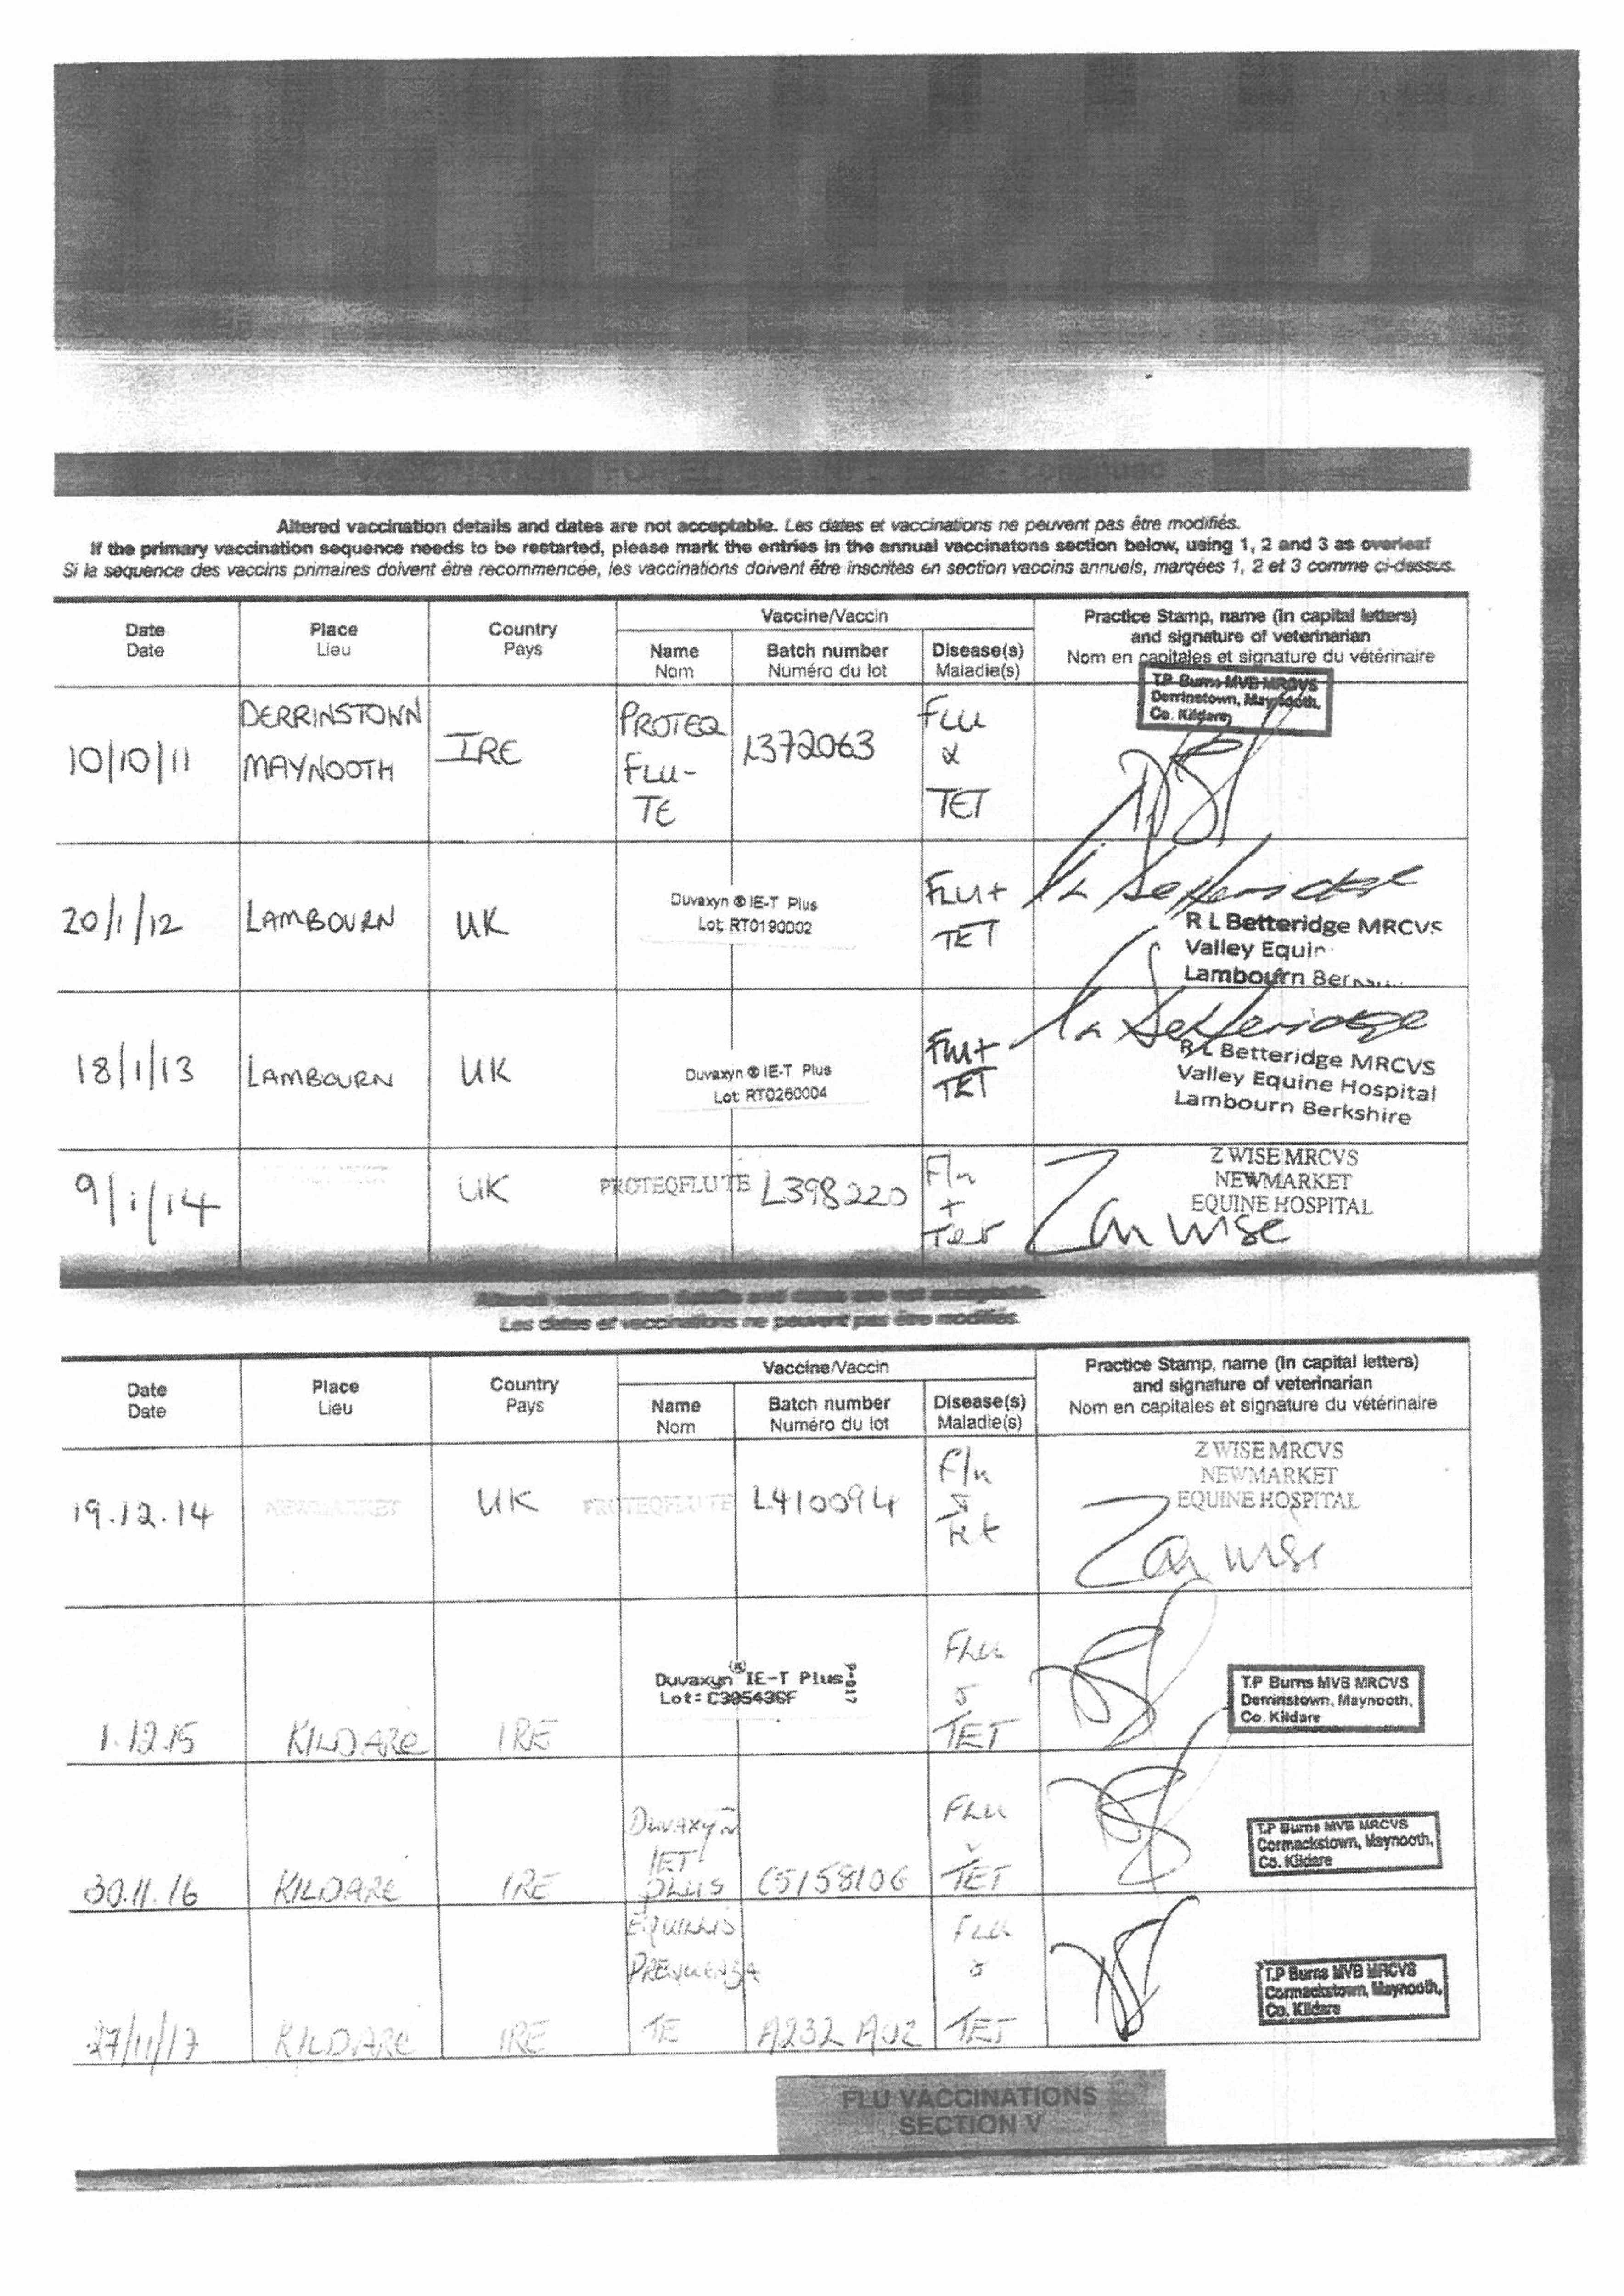 Altered vaccination details and dates are not acceptable. Les dates et vaccinations ne peuvent pas être modifiés.
If the primary vaccination sequence needs to be restarted, please mark the entries in the annual vaccinatons section below, using 1, 2 and 3 as overleaf
Si la sequence des vaccins primaires doivent être recommencée, les vaccinations doivent être inscrites en section vaccins annuels, marqées 1, 2 et 3 comme ci-dessus.
Date Place Country Vaccine/Vaccin Practice Stamp, name (in capital letters)
Date Lieu Pays Name Batch number Disease(s) and signature of veterinarian
Nom Numéro du lot Maladie(s) Nom en capitales et signature du vétérinaire
10/10/11 DERRINSTOWN MAYNOOTH IRE PROTEQ FLU-TE L372063 FLU & TET
T.P Burns MVB MRCVS
Derrinstown, Maynooth,
Co. Kildare
20/1/12 LAMBOURN UK Duvaxyn ® IE-T Plus FLU + TET
Lot: RT0190002
R L Betteridge MRCVS
Valley Equin
Lambourn
18/1/13 LAMBOURN UK Duvaxyn ® IE-T Plus FLU + TET
Lot: RT0260004
R L Betteridge MRCVS
Valley Equine Hospital
Lambourn Berkshire
9/1/14 UK PROTEQFLUTE L398220 Flu + Tet
Z WISE MRCVS
NEWMARKET
EQUINE HOSPITAL
Zan Wise
Altered vaccination details and dates are not acceptable.
Les dates et vaccinations ne peuvent pas être modifiés.
Date Place Country Vaccine/Vaccin Practice Stamp, name (in capital letters)
Date Lieu Pays Name Batch number Disease(s) and signature of veterinarian
Nom Numéro du lot Maladie(s) Nom en capitales et signature du vétérinaire
19.12.14 NEWMARKET UK PROTEQFLUTE L410094 Flu & Tet
Z WISE MRCVS
NEWMARKET
EQUINE HOSPITAL
Zan Wise
1.12.15 KILDARE IRE Duvaxyn ® IE-T Plus FLU & TET
T.P Burns MVB MRCVS
Derrinstown, Maynooth,
Co. Kildare
30.11.16 KILDARE IRE DUVAXYN IET PLUS C515810G FLU & TET
T.P Burns MVB MRCVS
Cormackstown, Maynooth,
Co. Kildare
27/11/17 KILDARE IRE TE FLU & TET
T.P Burns MVB MRCVS
Cormackstown, Maynooth,
Co. Kildare
FLU VACCINATIONS
SECTION V